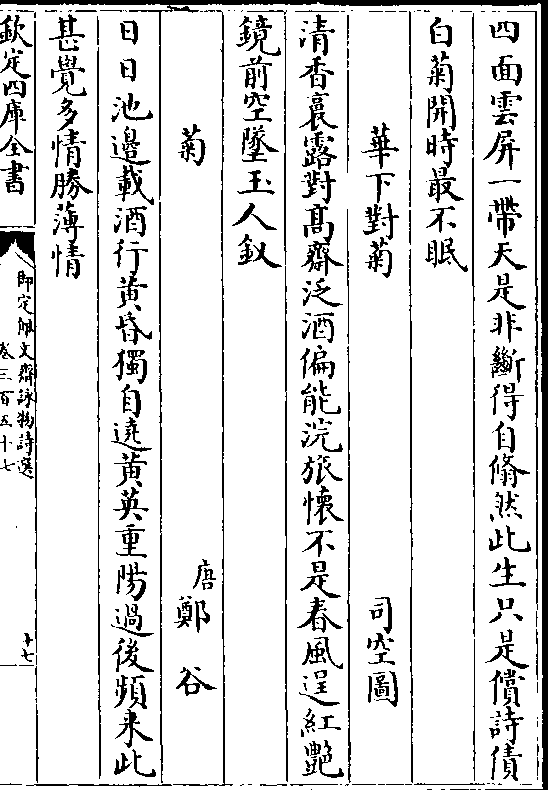 四面雲屏一帶天是非斷得自翛然此生只是償詩債
白菊開時最不眠
華下對菊
司空圖
清香裛露對髙齋泛酒偏能浣旅懷不是春風逞紅艷
鏡前空墜玉人釵
菊
唐鄭谷
日日池邊載酒行黄昏獨自遶黄英重陽過後頻来此
甚覺多情勝薄情
欽定四庫全書
御定佩文齋詠物詩選
卷三百五十七
十七